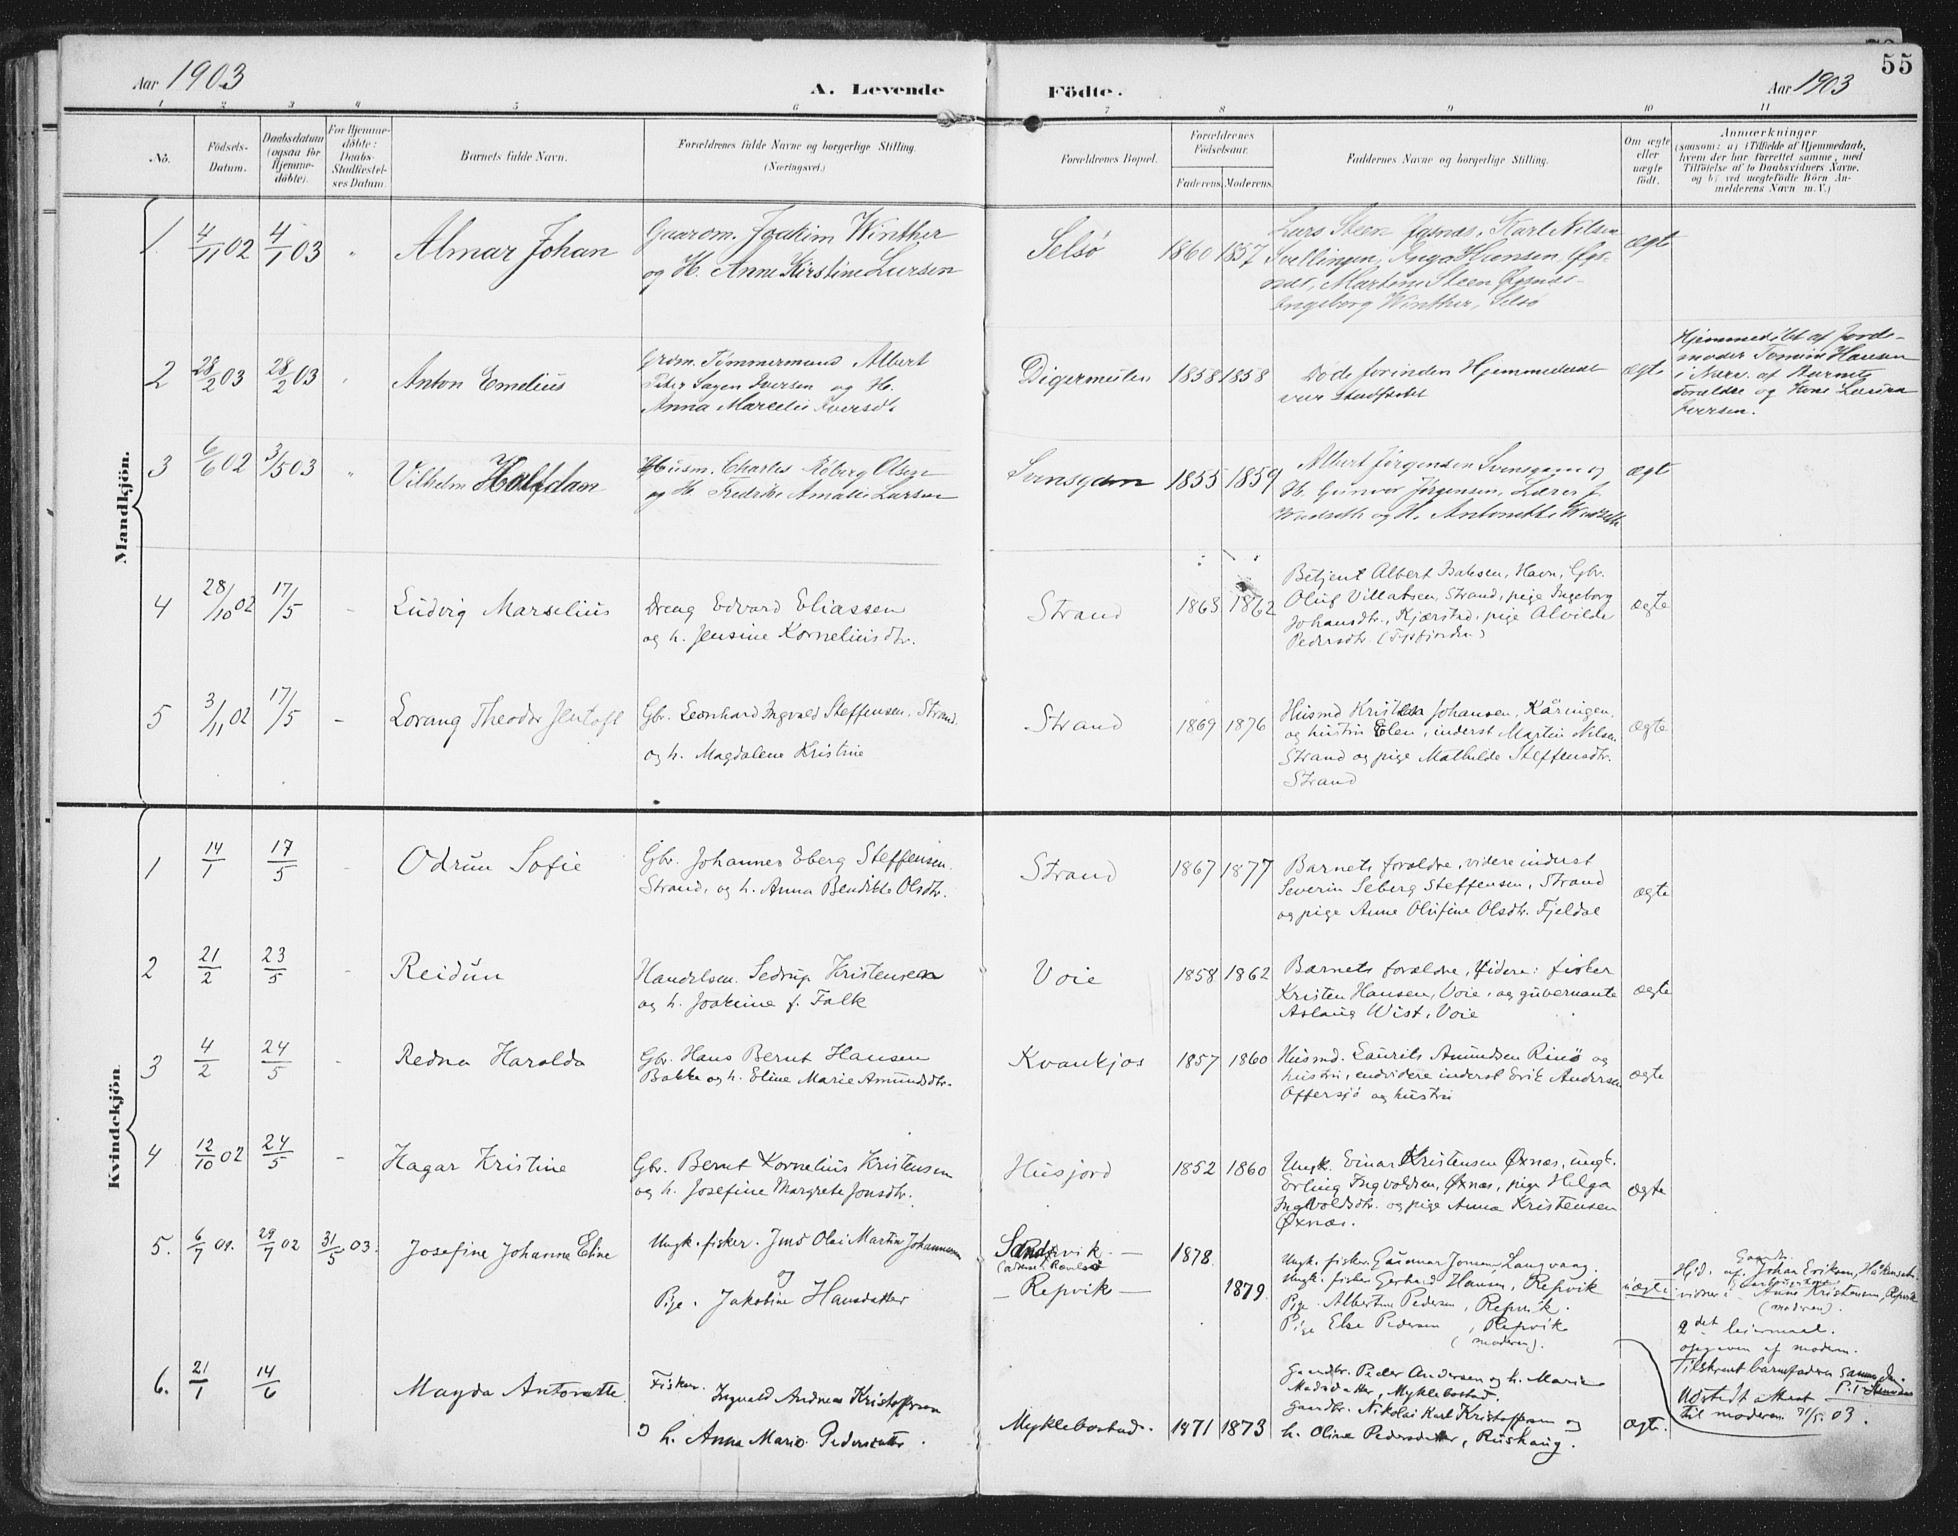 55
Aar 1903
A. Levende
Födte.
Aar 1903
1 2 3 4 5 6 7 8 9 10 11
No.
Födsels-Datum.
Daabsdatum (ogsaa for Hjemme-döbte).
For Hjemme-döbte: Daabs-Stadfæstel-ses Datum.
Barnets fulde Navn.
Forældrenes fulde Navne og borgerlige Stilling.
(Næringsvei.)
Forældrenes Bopæl.
Forældrenes Födselsaar.
Faderens. Moderens.
Faddernes Navne og borgerlige Stilling.
Om ægte eller uægte födt.
Anmærkninger
(saasom: a) i Tilfælde af Hjemmedaab,
hvem der har forrettet samme, med
Tilföielse af to Daabsvidners Navne,
og b) ved uægtefödte Börn An-
melderens Navn m. V.)
Mandkjön.
1 4/11 02 4/1 03 " Almar Johan
Gaardm. Joakim Winther
og H. Anne Kirstine Larsen
Selsø 1860 1857
Lars Steen Øgsnæs, Karl Nilsen
Svellingen, Hansen Øgs-
næs, Martine Steen Øgsnæs
Ingeborg Winther, Selsø
ægte
2 28/2 03 28/2 03 " Anton Emelius
Grdm. Tømmermand Albert
Peter Iversen og H.
Anna Marcelie Iversdt.
Digermulen 1858 1858
Døde forinden Hjemmedaab
var stadfæstet
ægte
Hjemmedøbt af Jorde-
moder Hansen
i Nærv. af Barnets
Forældre og Kone Laurina
Iversen.
3 6/6 02 3/5 03 " Vilhelm Halfdan
Husm. Charles Røberg Olsen
og H. Fredrikke Amalie Larsen
Svinsgam 1855 1859
Albert Jørgensen Svinsgam og
H. Gunvor Jørgensen, Lærer J.
og H. Antonette
ægte
4 28/10 02 17/5 - Ludvig Marselius
Dreng Edvard Eliassen
og h. Jensine Korneliusdtr.
Strand 1863 1862
Betjent Albert Isaksen, Havn, Gbr.
Oluf Villatsen, Strand, pige Ingeborg
Johansdtr., Kjærstad, pige Alvilde
Pedersdtr.
ægte
5 3/11 02 17/5 - Lorang Theodor Jentoft
Gbr. Leonhard Ingvald Steffensen, Strand
og h. Magdalene Kristine
Strand 1869 1876
Husmd Kristen Johansen, Kåringen,
og hustru Elen, inderst Martin Nilsen
Strand og pige Mathilde Steffensdtr.
Strand
ægte
Kvindekjön.
1 14/1 17/5 - Odrun Sofie
Gbr. Johannes Eberg Steffensen
Strand, og h. Anna Bendikte Olsdtr.
Strand 1867 1877
Barnets forældre, videre inderst
Severin Seberg Steffensen, Strand
og pige Anne Olufine Olsdtr. Fjeldal
ægte
2 21/2 23/5 - Reidun
Handelsm. Sedrup Kristensen
og h. Joakime f. Falk
Voie 1858 1862
Barnets forældre, videre: fisker
Kristen Hansen, Voie, og guvernante
Aslaug Wist, Voie
ægte
3 4/2 24/5 - Redna Haralda
Gbr. Hans Bernt Hansen
Bakke og h. Eline Marie Amundsdtr.
Kvankjos 1857 1860
Husmd. Laurits Amundsen Rinø og
hustru, endvidere inderst Erik Andersen
Offersjø og hustru
ægte
4 12/10 02 24/5 - Hagar Kristine
Gbr. Bernt Kornelius Kristensen
og h. Josefine Margrete Jonsdtr.
Husjord 1852 1860
Ungk. Einar Kristensen Øxnæs, ungk.
Erling Ingvoldsen, Øxnæs, pige Helga
Ingvoldsdtr. og pige Anna Kristensen
Øxnæs.
ægte
5. 6/7 01. 29/7 02 31/5 03. Josefine Johanne Eline
Ungk. fisker. Jens Olai Martin Johannesen
og
Pige. Jakobine Hansdatter
Sandvik -
- Repvik -
1878.
1879.
Ungk. fisker Gunnar Jensen Langvaag.
Ungk. fisker Gerhard Hansen, Repvik
Pige. Albertine Pedersen, Repvik.
Pige Else Pedersen, Repvik
(moderen).
uægte
Hjd. af. Johan Eriksen,
vidner: Anne Kristensen, Repvik
(moderen).
2det leiermaal.
opgiven af modern.
Tilskrevet barnefaderen samme dag.
Udstedt attest
til moderen 31/5 03.
6. 21/1 14/6 Magda Antonette
Fisker. Ingvald Andreas Kristoffersen
o h. Anna Marie Pedersdatter.
Myklebostad. 1871 1873
Gaardbr. Peder Andersen og h. Marie
Madsdatter, Myklebostad.
Gaardbr. Nikolai Karl Kristoffersen og
h. Oline Pedersdatter, Rushaug.
ægte.